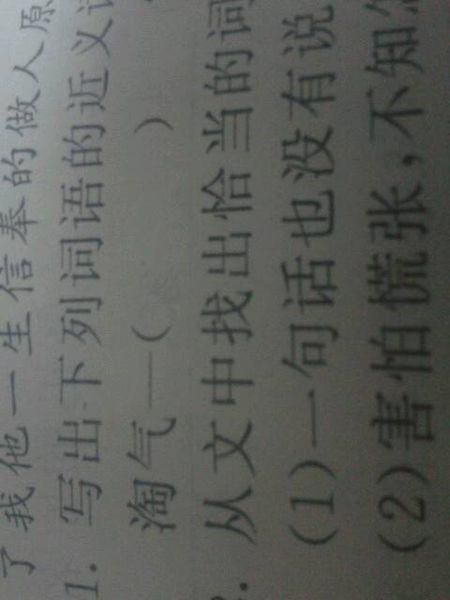 了我他一生信奉的做人原
1. 写出下列词语的近义词
淘气—( )
2. 从文中找出恰当的词
(1)一句话也没有说
(2)害怕慌张,不知怎